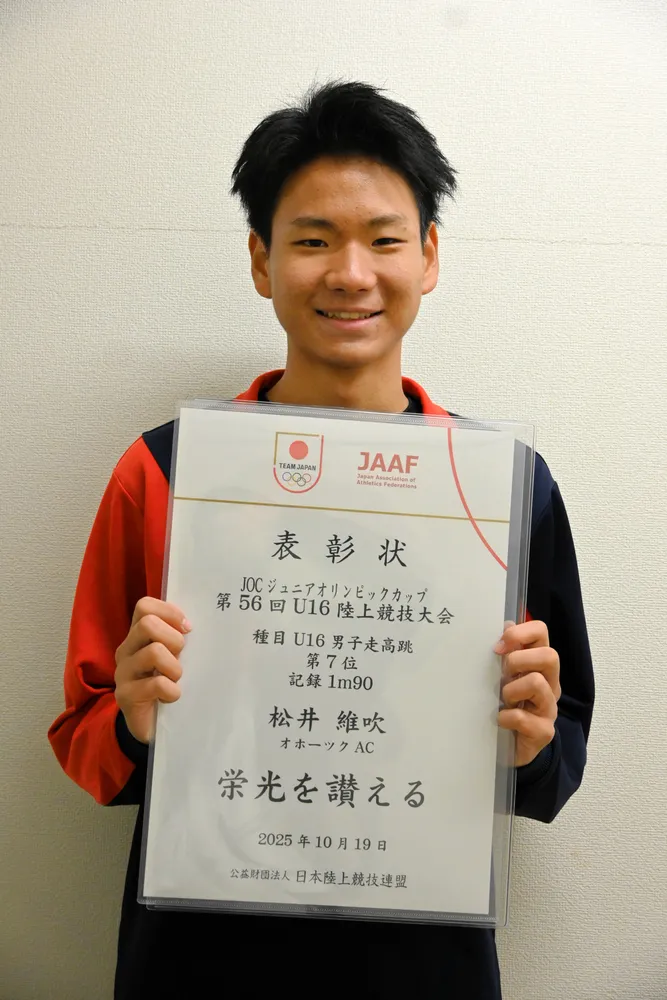 TEAM JAPAN
JAAF
Japan Association of
Athletics Federations
表彰状
JOCジュニアオリンピックカップ
第56回U16陸上競技大会
種目 U16男子走高跳
第7位
記録 1m90
松井 維吹
オホーツクAC
栄光を讃える
2025年10月19日
公益財団法人 日本陸上競技連盟